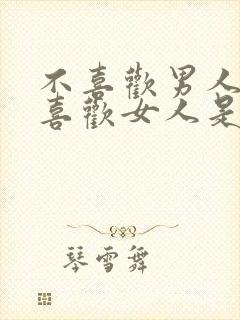 不喜歡男人
喜歡女人是
琴雪舞